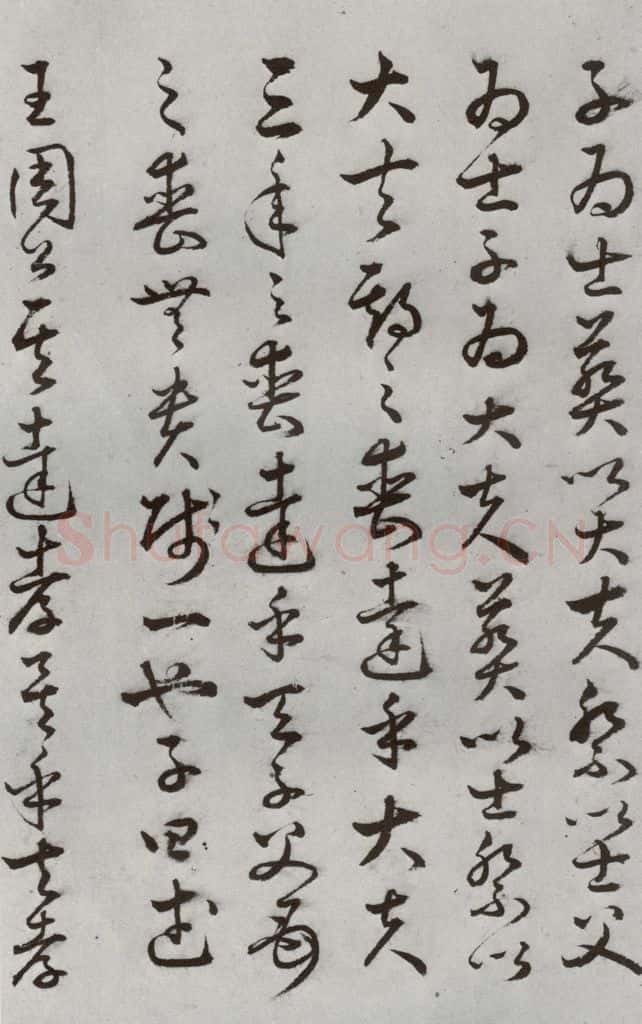 子為士葬以大夫祭以士父
為士子為大夫葬以士祭以
大夫期之喪達乎大夫
三年之喪達乎天子父母
之喪無貴賤一也子曰武
王周公其達孝矣乎夫孝
Shufawang.CN